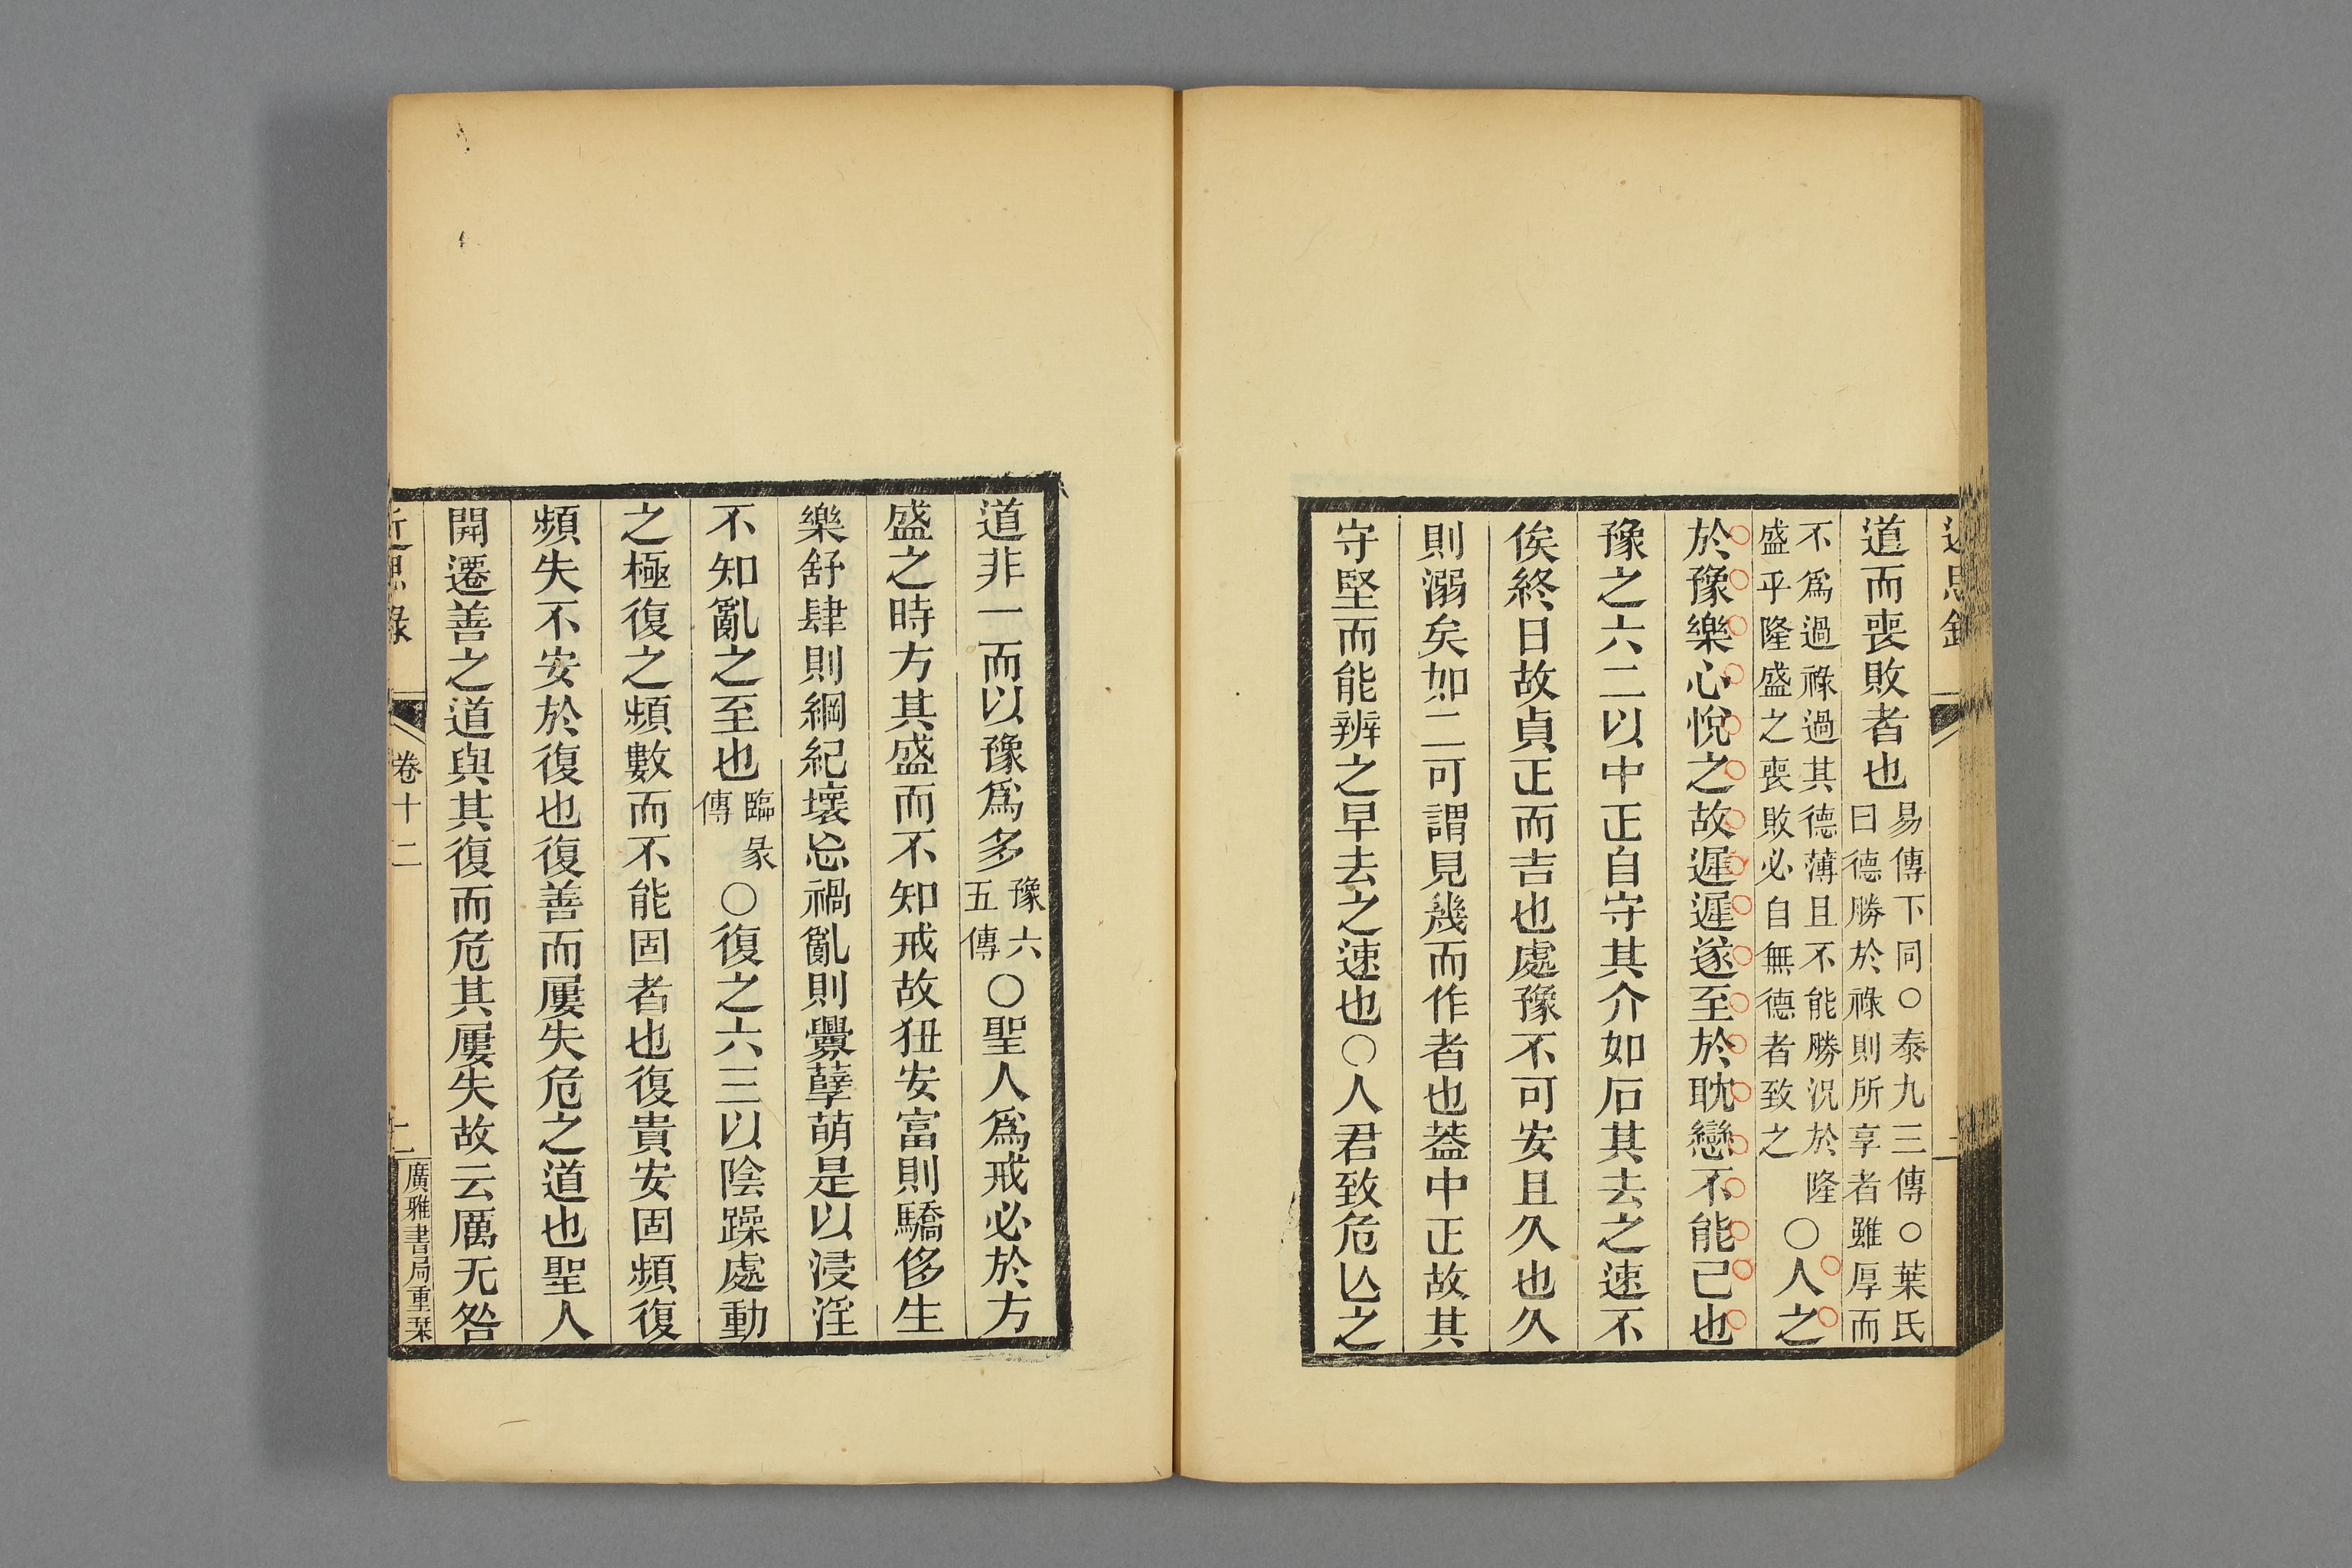 道而喪敗者也易傳下同○泰九三傳○葉氏
曰德勝於祿則所享者雖厚而
不爲過祿過其德薄且不能勝況於隆
盛乎隆盛之喪敗必自無德者致之○人之
於豫樂心悅之故遲遲遂至於耽戀不能已也
豫之六二以中正自守其介如石其去之速不
俟終日故貞正而吉也處豫不可安且久也久
則溺矣如二可謂見幾而作者也蓋中正故其
守堅而能辨之早去之速也○人君致危亾之
道非一而以豫爲多豫六
五傳○聖人爲戒必於方
盛之時方其盛而不知戒故狃安富則驕侈生
樂舒肆則綱紀壞忘禍亂則釁孽萌是以浸淫
不知亂之至也臨彖
傳○復之六三以陰躁處動
之極復之頻數而不能固者也復貴安固頻復
頻失不安於復也復善而屢失危之道也聖人
開遷善之道與其復而危其屢失故云厲无咎
近思錄 卷十二 二 廣雅書局重栞